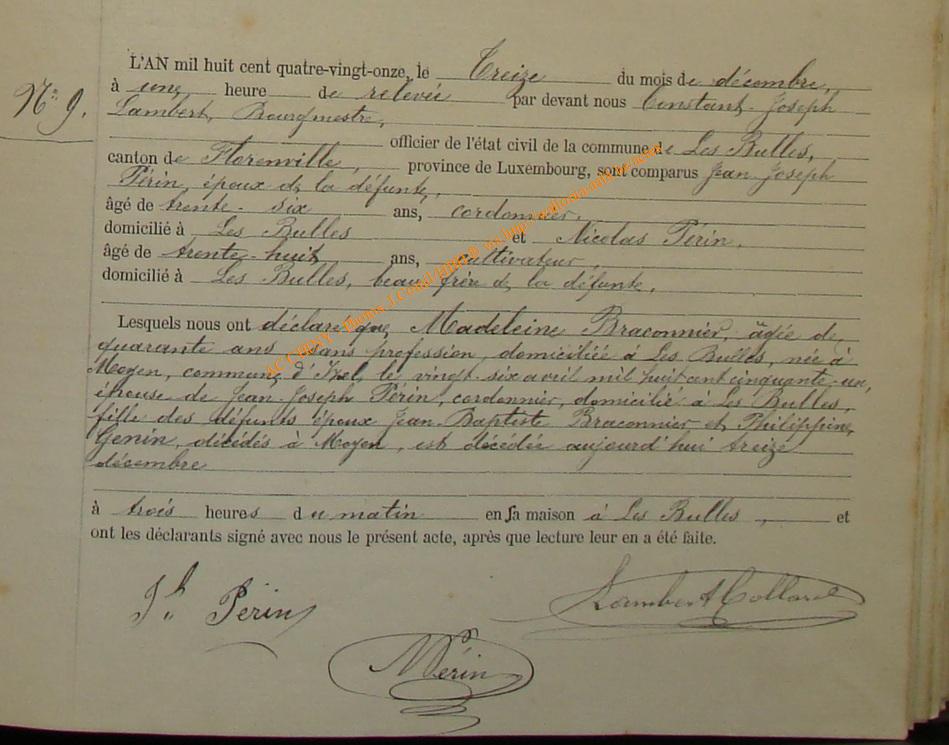 L'AN mil huit cent quatre-vingt-onze, le Treize du mois de décembre,
N° 9.
à une heure de relevée par devant nous Constant Joseph
Lambert, Bourgmestre,
officier de l'état civil de la commune de Les Bulles,
canton de Florenville, province de Luxembourg, sont comparus Jean Joseph
Périn, époux de la défunte,
âgé de trente-six ans, cordonnier,
domicilié à Les Bulles et Nicolas Périn,
âgé de trente-huit ans, cultivateur,
domicilié à Les Bulles, beau frère de la défunte.
Lesquels nous ont déclaré que Madeleine Braconnier, âgée de
quarante ans sans profession, domiciliée à Les Bulles, née à
Moyen, commune d'Izel, le vingt six avril mil huit cent cinquante-un,
épouse de Jean Joseph Périn, cordonnier, domicilié à Les Bulles,
fille des défunts époux Jean-Baptiste Braconnier et Philippine
Genin, décédés à Moyen, est décédée aujourd'hui treize
décembre
à trois heures du matin en sa maison à Les Bulles, et
ont les déclarants signé avec nous le présent acte, après que lecture leur en a été faite.
Jh Périn
Lambert Collard
NPérin